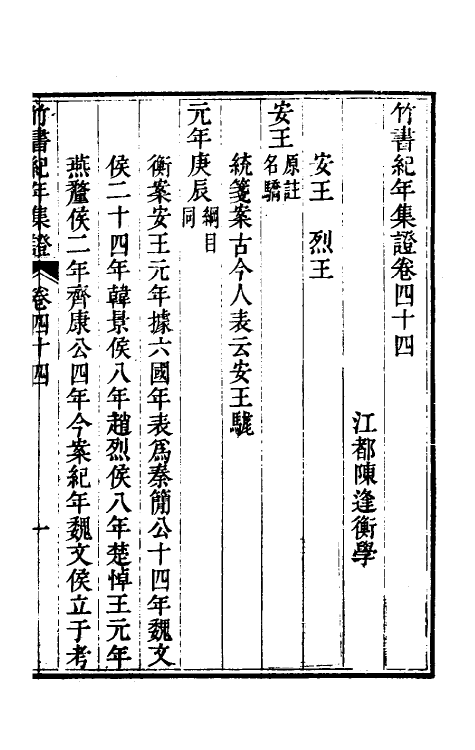 竹書紀年集證卷四十四
江都陳逢衡學
安王　烈王
安王原註名驕
統箋案古今人表云安王驍
元年庚辰綱目同
衡案安王元年據六國年表爲秦簡公十四年魏文
侯二十四年韓景侯八年趙烈侯八年楚悼王元年
燕釐侯二年齊康公四年今案紀年魏文侯立于考
竹書紀年集證　卷四十四　一